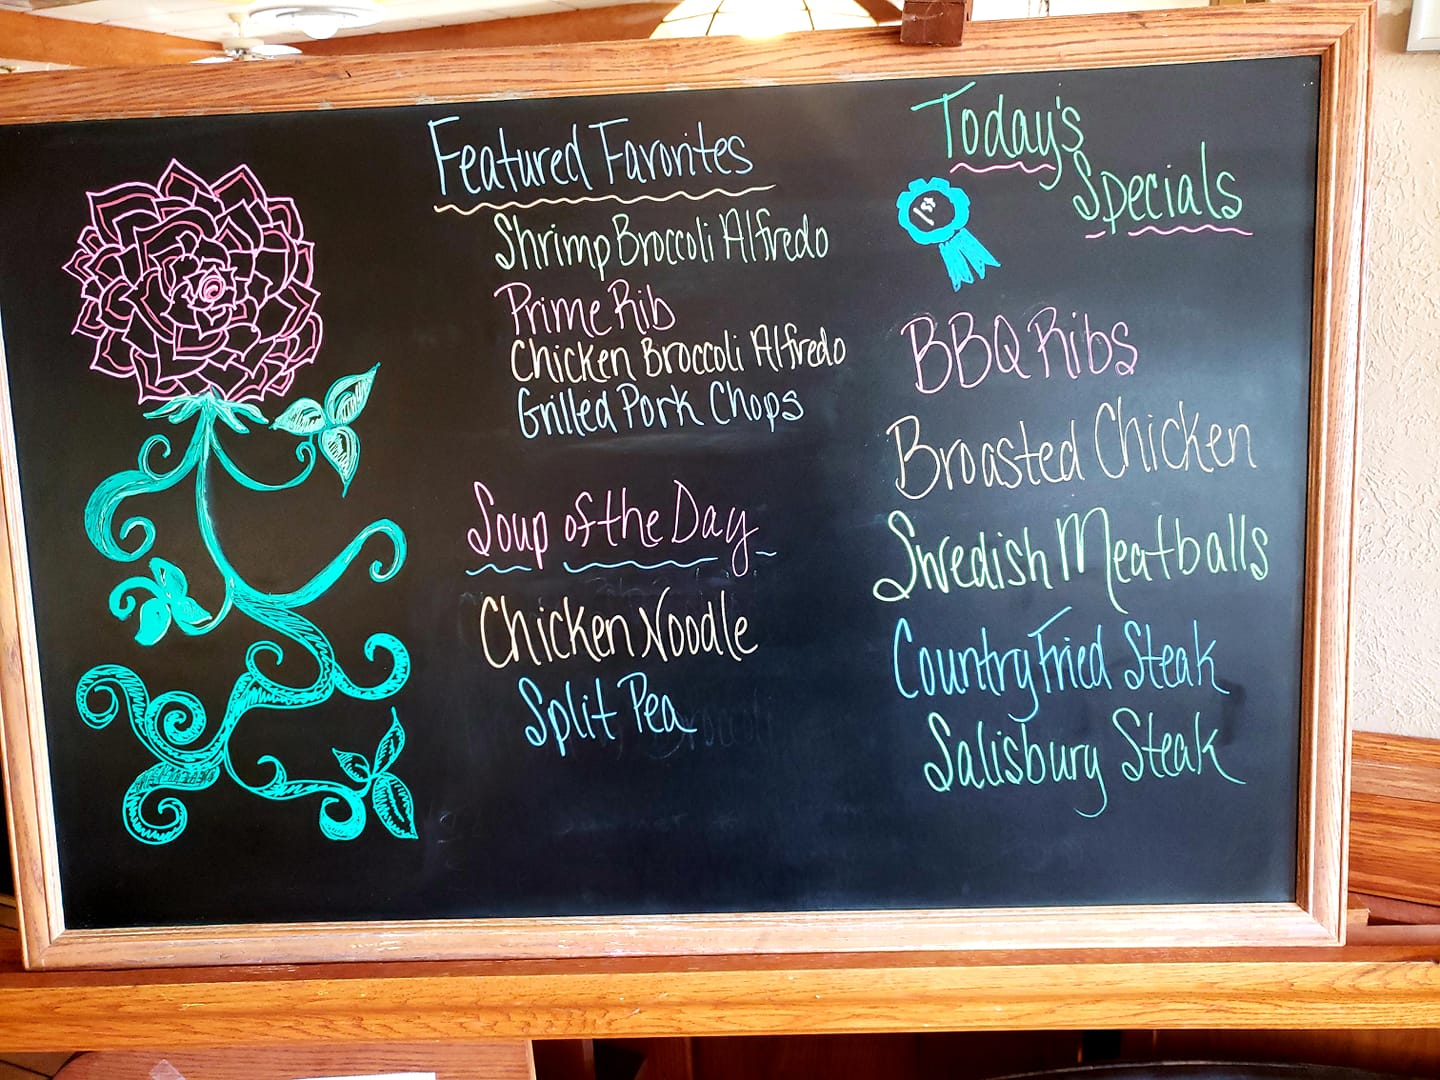 Featured Favorites
Shrimp Broccoli Alfredo
Prime Rib
Chicken Broccoli Alfredo
Grilled Pork Chops
Soup of the Day
Chicken Noodle
Split Pea
Today's
Specials
1st
BBQ Ribs
Broasted Chicken
Swedish Meatballs
Country Fried Steak
Salisbury Steak